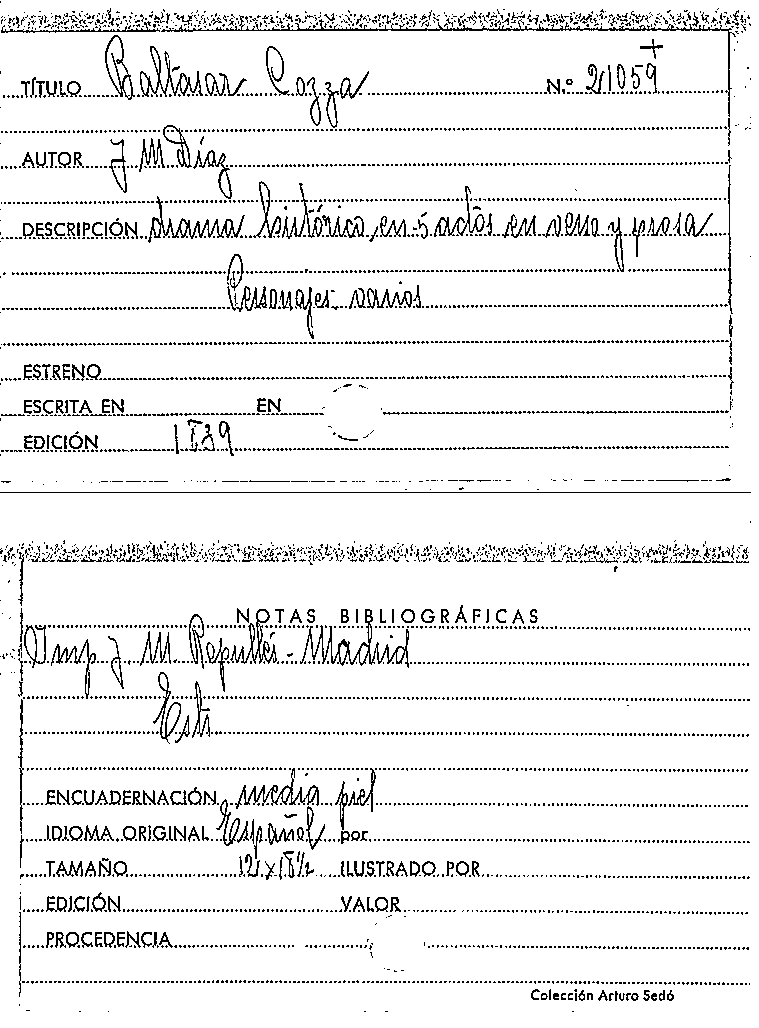 TÍTULO Baltasar Cozza N.º 21059
AUTOR J M Díaz
DESCRIPCIÓN drama histórico en 5 actos en verso y prosa
Personajes varios
ESTRENO
ESCRITA EN EN
EDICIÓN 1839
NOTAS BIBLIOGRÁFICAS
Imp J M Repullés - Madrid
ENCUADERNACIÓN media piel
IDIOMA ORIGINAL Español por
TAMAÑO 12 x 18½ ILUSTRADO POR
EDICIÓN VALOR
PROCEDENCIA
Colección Arturo Sedó